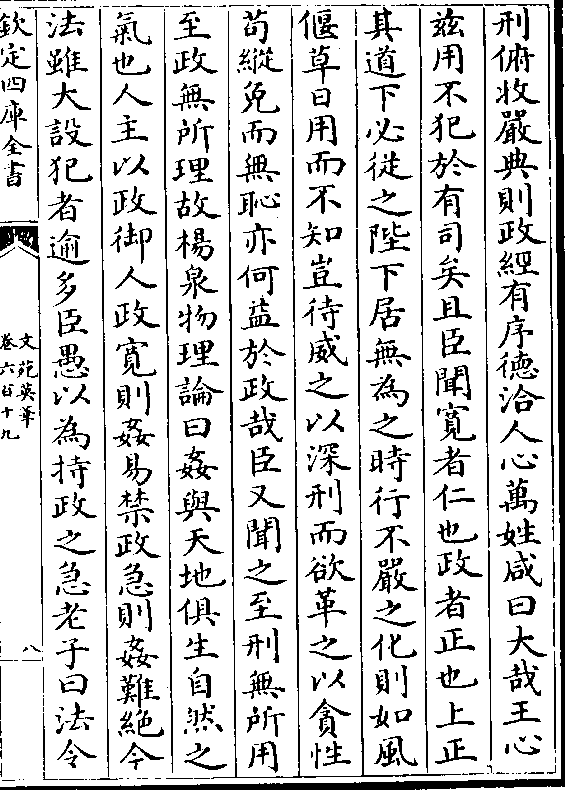 刑俯收嚴典則政經有序德洽人心萬姓咸曰大哉王心
兹用不犯於有司矣且臣聞寛者仁也政者正也上正
其道下必從之陛下居無為之時行不嚴之化則如風
偃草日用而不知豈待威之以深刑而欲革之以貪性
苟縱免而無恥亦何益於政哉臣又聞之至刑無所用
至政無所理故楊泉物理論曰姦與天地俱生自然之
氣也人主以政御人政寛則姦易禁政急則姦難絶今
法雖大設犯者逾多臣愚以為持政之急老子曰法令
欽定四庫全書
文苑英華
卷六百十九
八